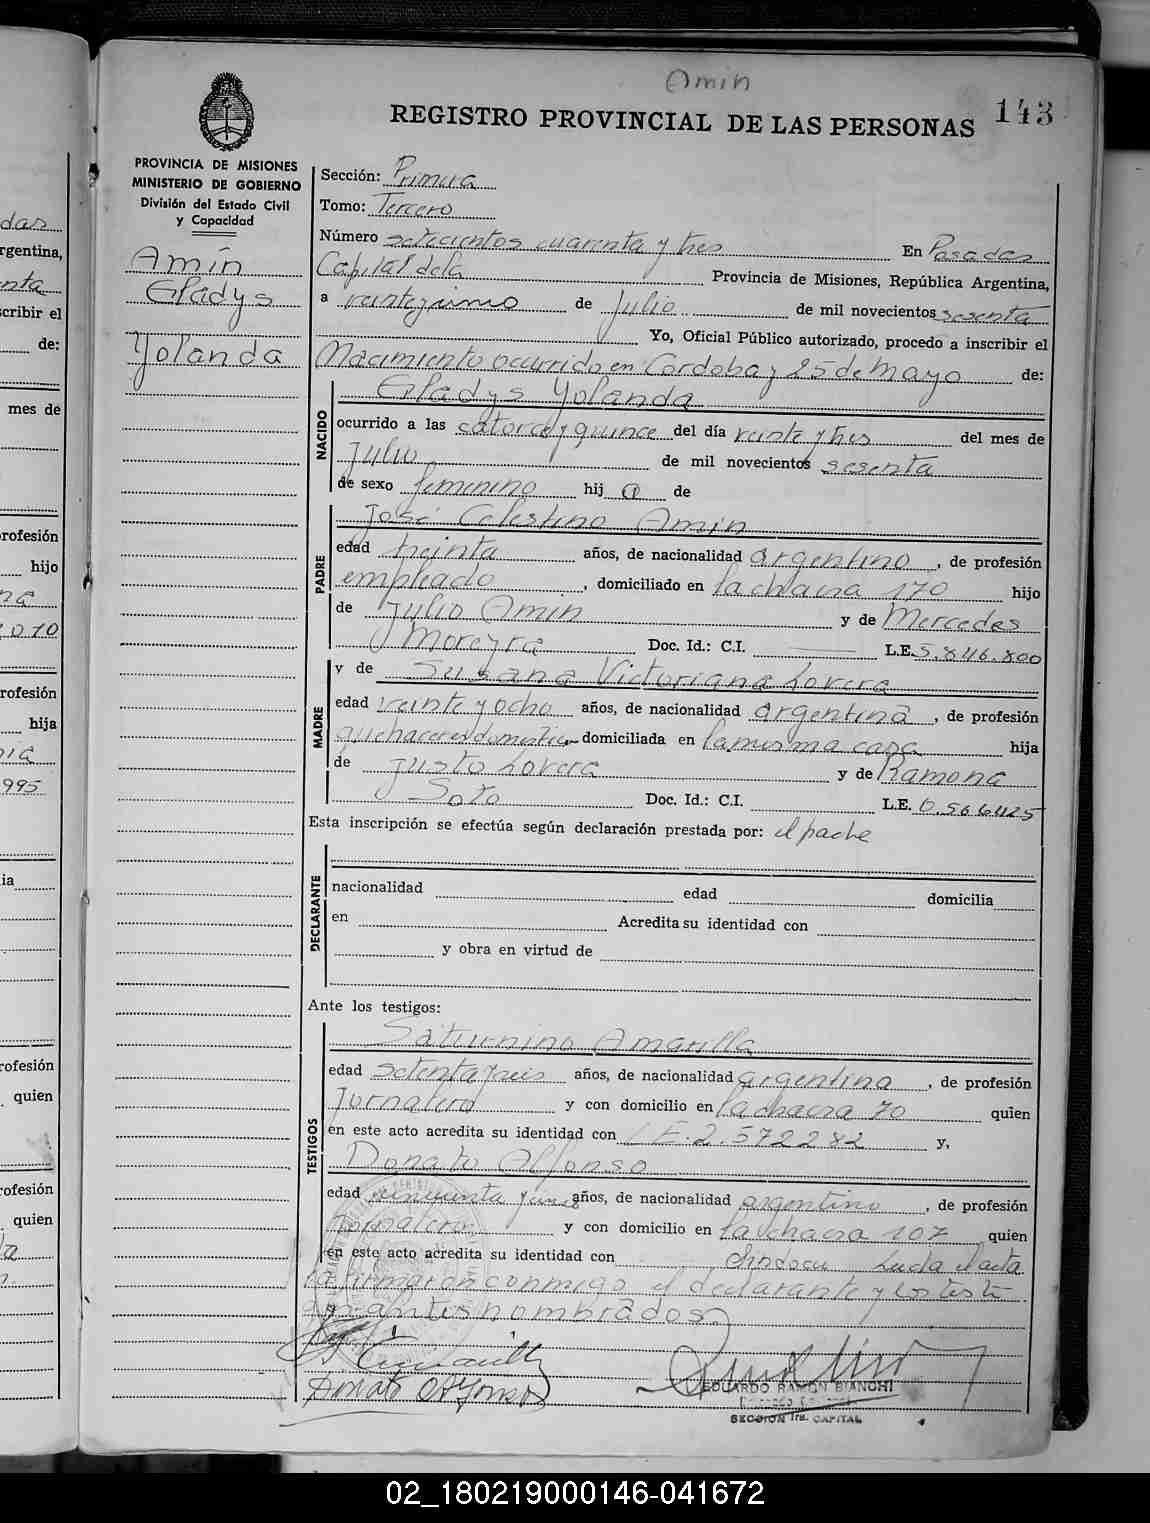 Amin
REGISTRO PROVINCIAL DE LAS PERSONAS 143
PROVINCIA DE MISIONES
MINISTERIO DE GOBIERNO
División del Estado Civil
y Capacidad
Amín
Gladys
Yolanda
Sección: Primera
Tomo: Tercero
Número setecientos cuarenta y tres En Posadas
Capital de la Provincia de Misiones, República Argentina,
a veinte de Julio de mil novecientos sesenta
Yo, Oficial Público autorizado, procedo a inscribir el
Nacimiento ocurrido en Cordoba y 25 de Mayo de:
NACIDO
Gladys Yolanda
ocurrido a las catorce y quince del día veinte y tres del mes de
Julio de mil novecientos sesenta
de sexo femenino hij a de
PADRE
José Celestino Amin
edad treinta años, de nacionalidad argentino, de profesión
empleado, domiciliado en la chacra 170 hijo
de Julio Amin y de Mercedes
Moreyra Doc. Id.: C.I. L.E. 5.846.800
MADRE
y de Susana Victoriana Lovera
edad veinte y ocho años, de nacionalidad argentina, de profesión
quehaceres domésticos domiciliada en la misma casa hija
de Justo Lovera y de Ramona
Soto Doc. Id.: C.I. L.E. 0.566425
Esta inscripción se efectúa según declaración prestada por: el padre
DECLARANTE
nacionalidad edad domicilia
en Acredita su identidad con
y obra en virtud de
Ante los testigos:
TESTIGOS
Saturnino Amarilla
edad setenta y seis años, de nacionalidad argentina, de profesión
Jornalero y con domicilio en la chacra 70 quien
en este acto acredita su identidad con L.E. 2.572282 y,
Donato Alfonso
edad cincuenta y años, de nacionalidad argentino, de profesión
jornalero y con domicilio en la chacra 107 quien
en este acto acredita su identidad con Leida el acta
la firmaron conmigo el declarante y los testi
gos antes nombrados.
Donato Alfonso
EDUARDO RAMON BIANCHI
SECCION 1ra. CAPITAL
das
rgentina,
nta
scribir el
de:
mes de
rofesión
hijo
na
2010
rofesión
hija
nia
995
ia
rofesión
quien
rofesión
quien
02_180219000146-041672